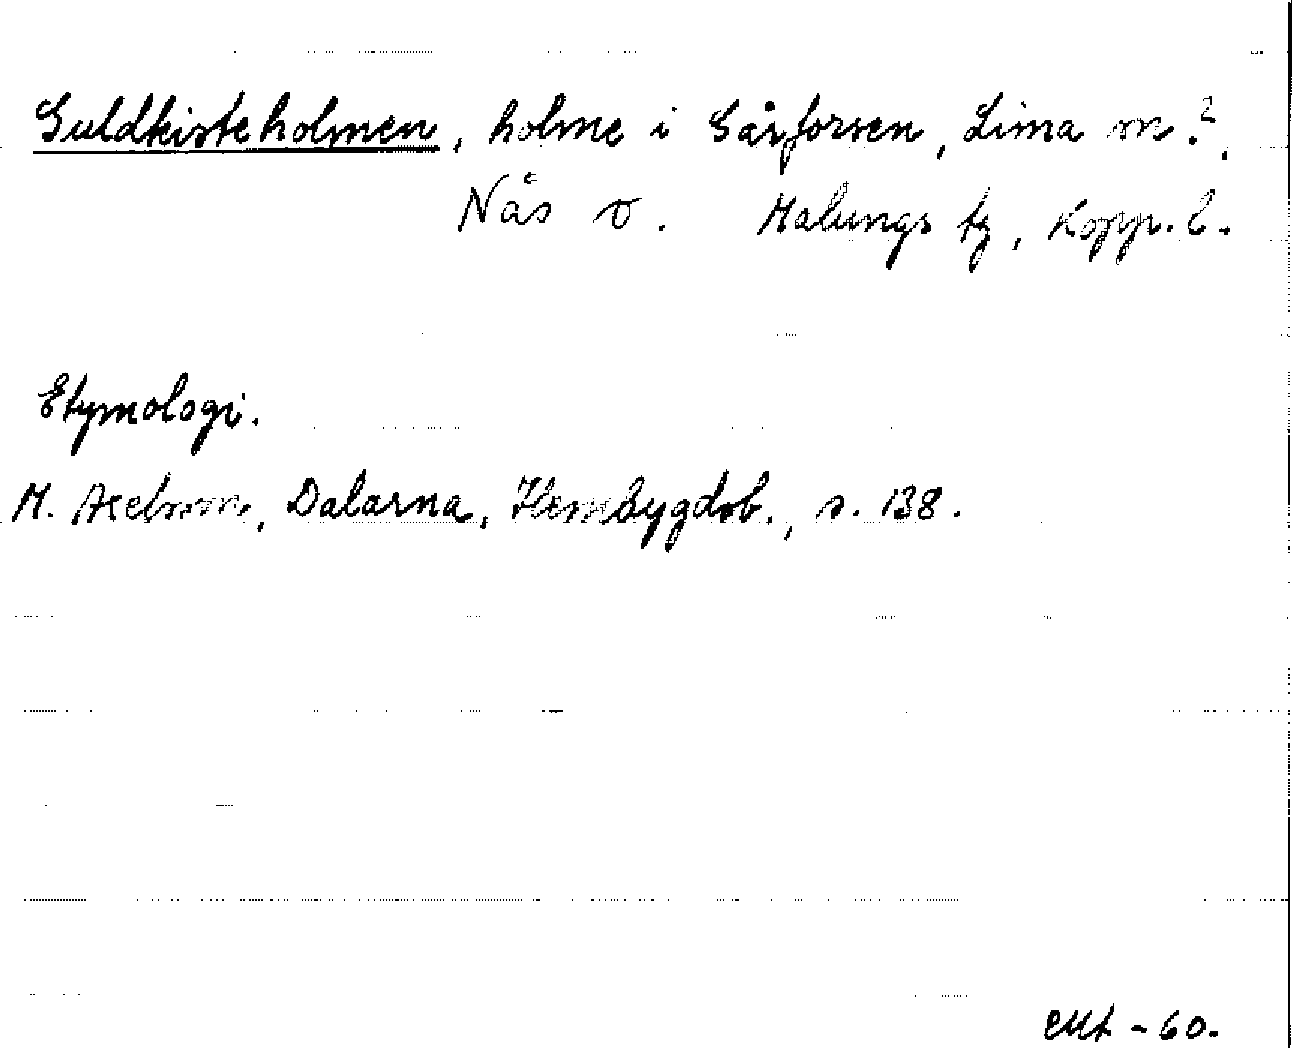 Guldkisteholmen, holme i Gåsforsen, Lima sn?.
Nås v. Malungs tg, Kopp. l.
Etymologi.
M. Axelsson, Dalarna, Hembygdsb., s. 138.
-60.